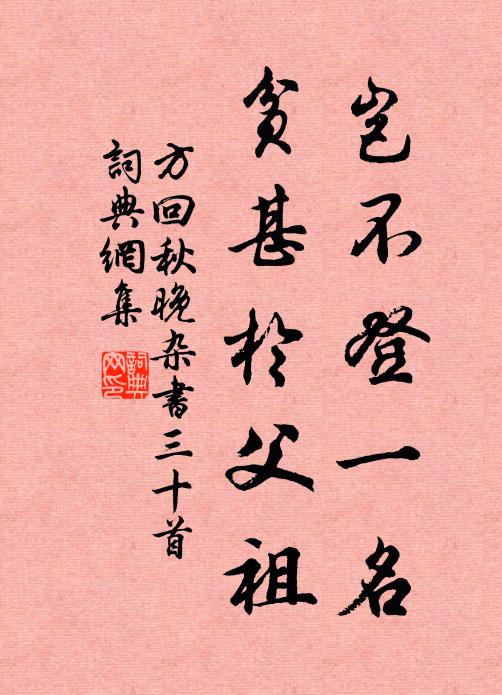 豈不登一名
貧甚於父祖
方回秋晚杂書三十首
詞典網集
詞典
网印